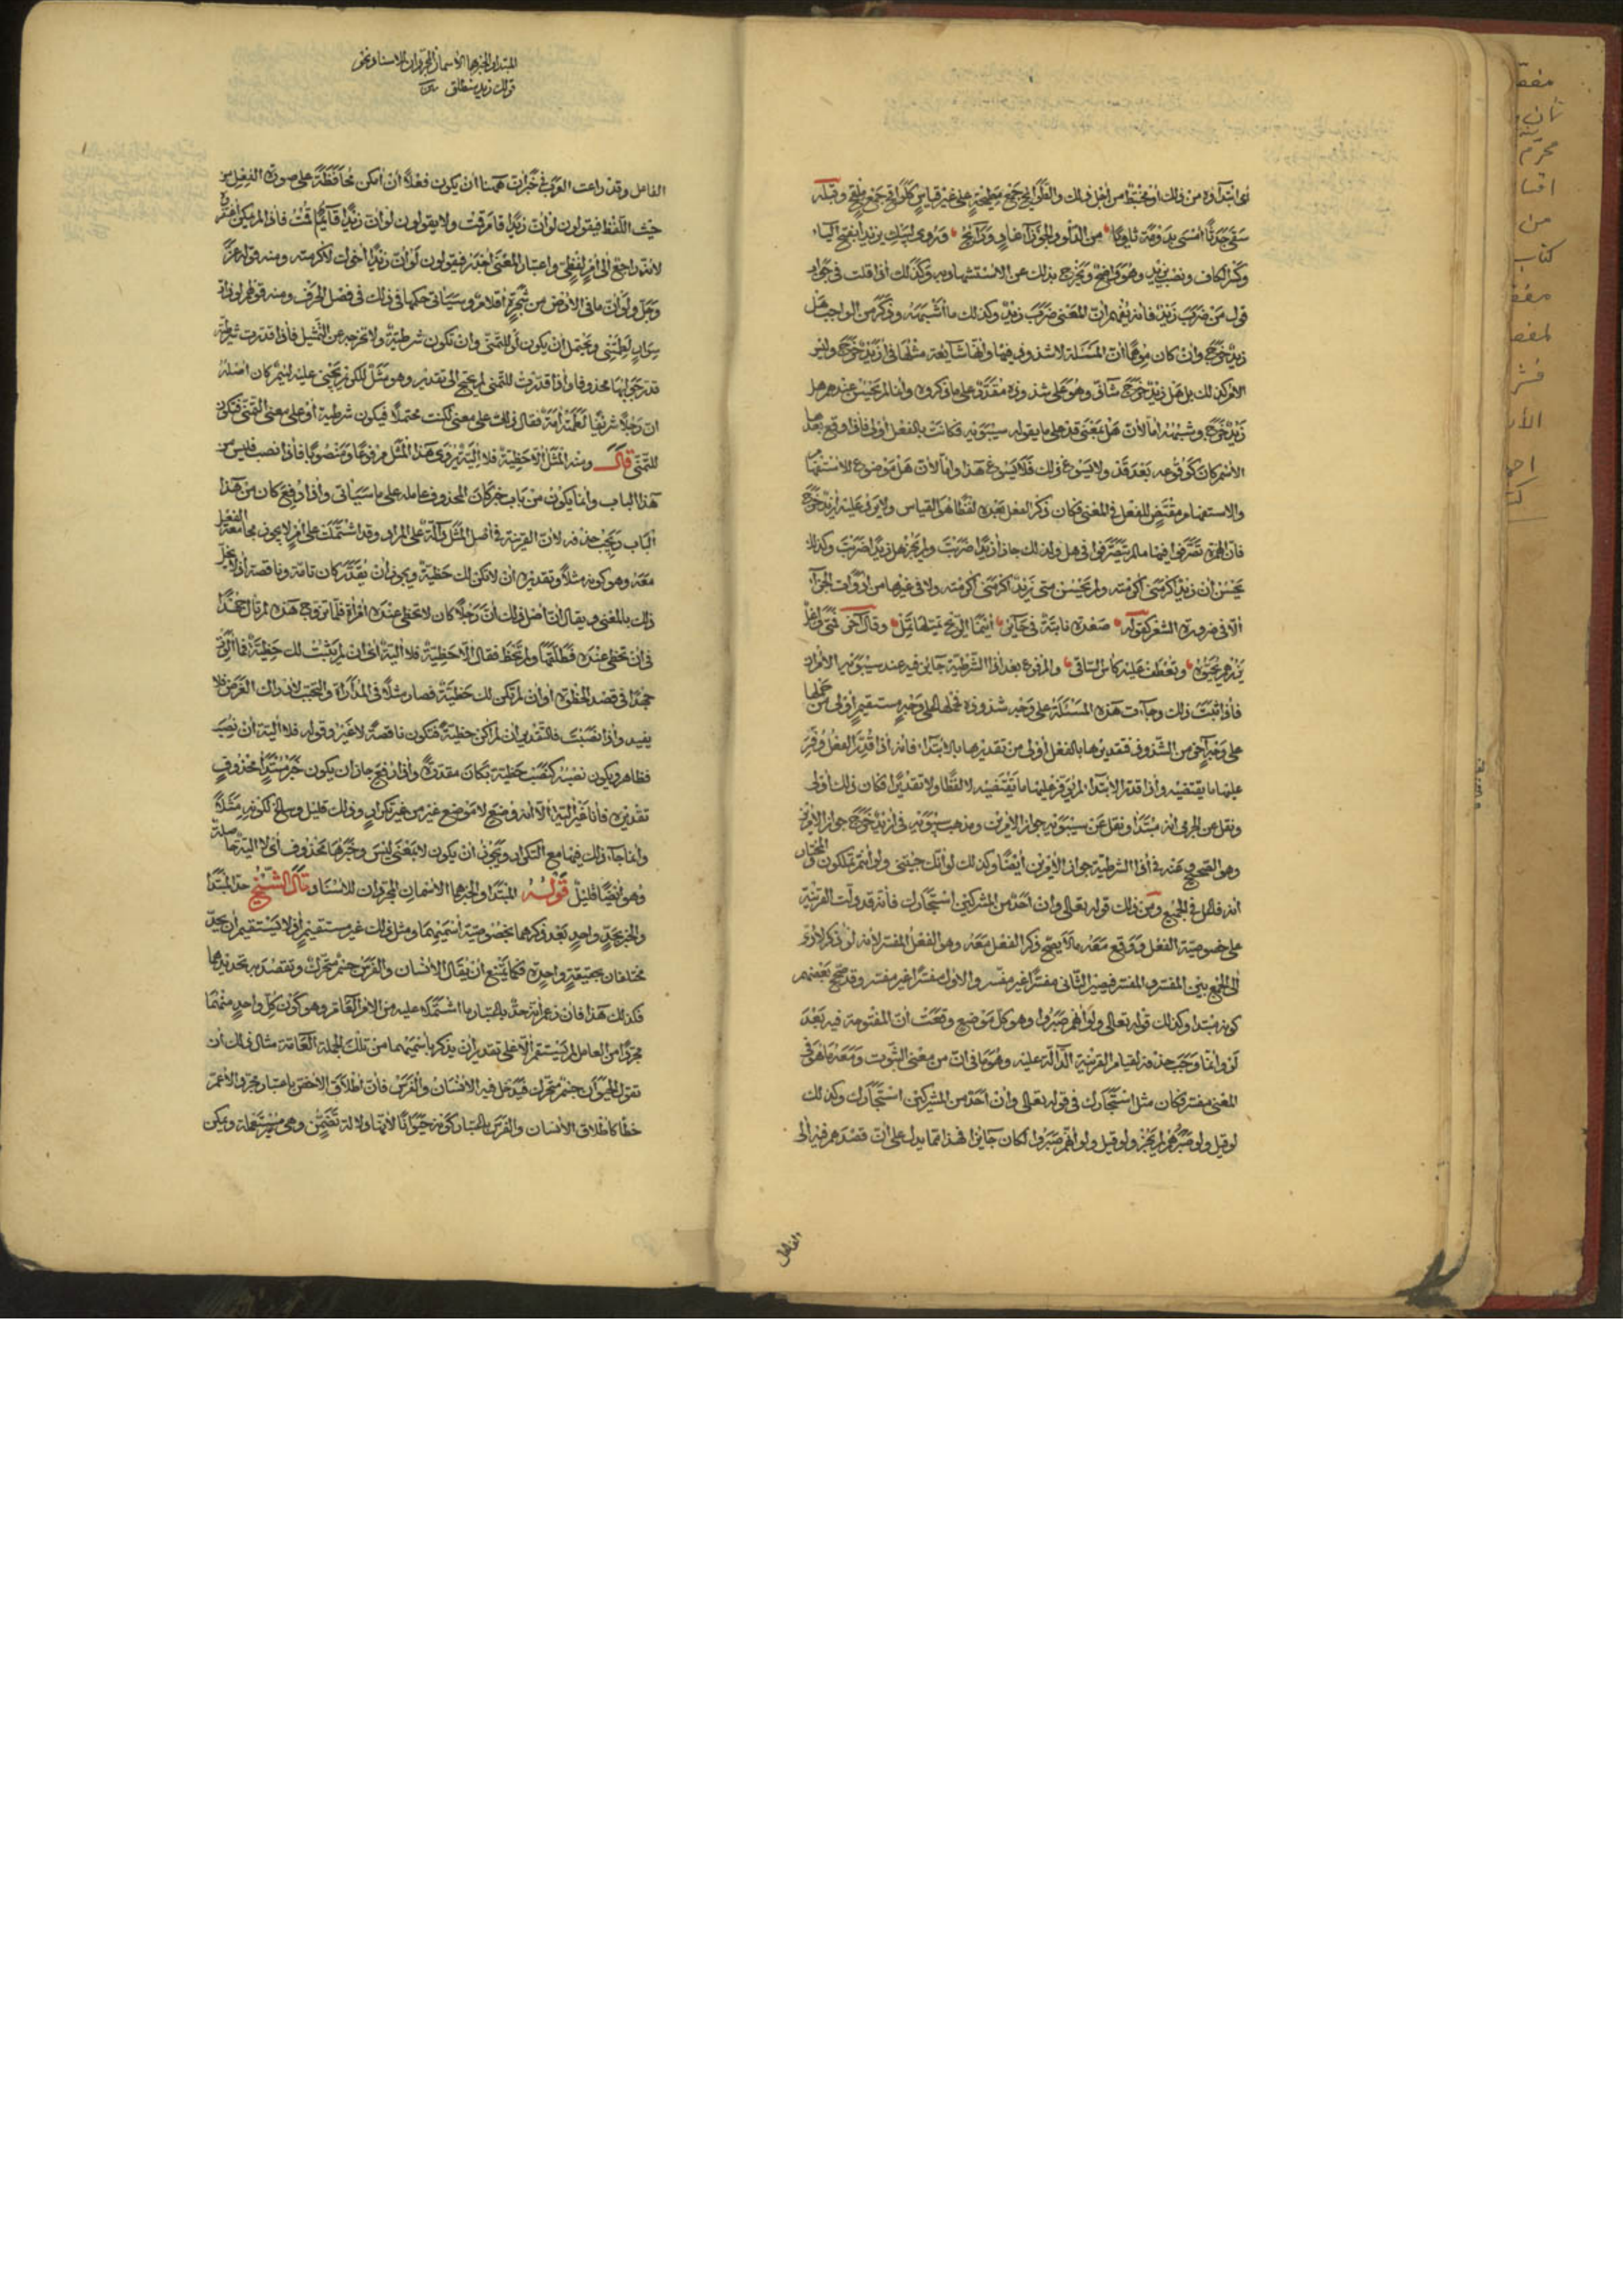 أى ابتداؤه من ذلك أو مختبط من أجل ذلك والطوائح جمع مطيحة على غير قياس كلواقح جمع ملقحة وقبله
سقى جدثا أمسى بدومة ثاويا من الدلو والجوزآء غاد ورآئح وروى ليبك يزيد بفتح اليآء
وكسر الكاف ونصب يزيد وهو واضح ويخرج بذلك عن الاستشهاد به وكذلك اذا قلت فى جواب
قول من ضرب زيد فانه يفهم أن المعنى ضرب زيد وكذلك ما أشبهه وذكر من الواجب هل
زيد خرج وان كان موهما أن المسئلة لا شذوذ فيها وانها شايعة مثلها فى أزيد خرج وليس
الأمر كذلك بل هل زيد خرج شاذ وهو على شذوذه مقدر على ما ذكروه وانما لم يحسن عندهم هل
زيد خرج وشبهه اما لأن هل بمعنى قد على ما يقوله سيبويه فكانت بالفعل أولى فاذا وقع بعدها
الاسم كان كوقوعه بعد قد ولا يسوغ ذلك فلا يسوغ هذا واما لان هل موضوع للاستفهام
والاستفهام مقتض للفعل فى المعنى فكان ذكر الفعل بعده لفظا هو القياس ولا يرد عليه أزيد خرج
فان الهمزة تصرفوا فيها ما لم يتصرفوا فى هل ولذلك جاز أزيدا ضربت ولم يجز هل زيدا ضربت وكذلك
يحسن ان زيد اكرمنى أكرمته ولم يحسن متى زيد اكرمنى أكرمته ولا فى غيرها من أدوات الجزآء
الا فى ضرورة الشعر كقوله صعدة نابتة فى حاير أينما الريح تميلها تمل وقال آخر فمتى واغل
ينبهم يحيوه وتعطف عليه كأس الساقى والمرفوع بعد اذا الشرطية جايز فيه عند سيبويه الأمران
فاذا ثبت ذلك وجآءت هذه المسئلة على وجه شذوذه فحملها على وجه مستقيم أولى من حملها
على وجه آخر من الشذوذ فتقديرها بالفعل أولى من تقديرها بالابتدآء فانه اذا قدر الفعل وفر
عليها ما يقتضيه واذا قدر الابتدآء لم يوفر عليها ما يقتضيه لا لفظا ولا تقديرا فكان ذلك أولى
ونقل عن الجرمى أنه مبتدأ ونقل عن سيبويه جواز الأمرين ومذهب سيبويه فى أزيد خرج جواز الأمرين
وهو الصحيح عنه فى اذا الشرطية جواز الأمرين أيضا وكذلك لو أنك جيتنى ولو أنتم تملكون والمختار
أنه فاعل فى الجميع ومن ذلك قوله تعالى وان أحد من المشركين استجارك فانه قد دلت القرينة
على خصوصية الفعل ووقع معه ما لا يصح ذكر الفعل معه وهو الفعل المفسر لأنه لو ذكر لأدى
الى الجمع بين المفسر والمفسر فيصير الثانى مفسرا غير مفسر والاول مفسرا غير مفسر وقد صحح بعضهم
كونه مبتدا وكذلك قوله تعالى ولو أنهم صبروا وهو كل موضع وقعت أن المفتوحة فيه بعد
لو وانما وجب حذفه لقيام القرينة الدآلة عليه وهو ما فى ان من معنى الثبوت ومعه ما هو فى
المعنى مفسر فكان مثل استجارك فى قوله تعالى وان أحد من المشركين استجارك وكذلك
لو قيل ولو صبرهم لم يجز ولو قيل ولو أنهم صبروا لكان جايزا فهذا مما يدل على ان قصدهم فيه الى
الفاعل
المبتدا والخبر هما الاسمان المجردان للاسناد نحو
قولك زيد منطلق
الفاعل وقد راعت العرب فى خبر ان ههنا ان يكون فعلا ان أمكن محافظة على صورة الفعل من
حيث اللفظ فيقولون لو ان زيدا قام قمت ولا يقولون لو ان زيدا قايم قمت فاذا لم يكن
لانه راجع الى أمر لفظى واعتبار المعنى أجدر فيقولون لو ان زيدا أخوك لأكرمته ومنه قوله عز
وجل ولو أن ما فى الأرض من شجرة أقلام وسيأتى حكمها فى ذلك فى فصل الحرف ومنه قولهم لو ذات
سوار لطمتنى ويحتمل ان يكون لو للتمنى وان تكون شرطية ولا تخرجه عن التمثيل فاذا قدرت شرطية
قدر جوابها محذوفا واذا قدرت للتمنى لم يحتج الى تقدير وهو مثل للكريم يجنى عليه لئيم كان أصله
ان رجلا شريفا لطمته أمة فقال ذلك على معنى لكنت محتملا فيكون شرطية أو على معنى التمنى فتكون
للتمنى قال ومنه المثل الا حظية فلا ألية يروى هذا المثل مرفوعا ومنصوبا فاذا نصب فليس من
هذا الباب وانما يكون من باب خبر كان المحذوف عامله على ما سيأتى واذا رفع كان من هذا
الباب ويجب حذفه لأن القرينة فى أصل المثل دآلة على المراد وقد اشتملت على أمر لا يجوز مجامعة الفعل
معه وهو كونه مثلا وتقديره ان لا تكن لك حظية ويجوز أن يقدر كان تامة وناقصة اذ لا يخل
ذلك بالمعنى ويقال ان أصل ذلك أن رجلا كان لا تحظى عنده امرأة فلما تزوج هذه لم تأل جهدا
فى ان تحظى عنده فطلقها ولم تحظ فقال الا حظية فلا ألية أى ان لم يثبت لك حظية فما آلوت
جهدا فى قصد الحظوة أو ان لم تكن لك حظية فصار مثلا فى المداراة والتحبب لادراك الغرض فلا
يفيد واذا نصبت فالتقدير ان لم اكن حظية فتكون ناقصة لا غير وقوله فلا ألية ان نصب
فظاهر ويكون نصبه كنصب حظية بكان مقدرة واذا رفع جاز ان يكون خبر مبتدأ محذوف
تقديره فأنا غير ألية الا أنه وضع لا موضع غير من غير تكرار وذلك قليل وسايغ لكونه مثلا
وانما جآء ذلك فيها مع التكرار ويجوز أن يكون لا بمعنى ليس وخبرها محذوف أى لا ألية حاصلة
وهو أيضا قليل قوله المبتدا والخبر هما الاسمان المجردان للاسناد قال الشيخ حد المبتدا
والخبر بحد واحد بعد ذكرهما بخصوصية اسميهما ومثل ذلك غير مستقيم اذ لا يستقيم أن يحد
مختلفان بحقيقة واحدة فكما يمتنع أن يقال الانسان والفرس جسم متحرك ويقصد به تحديدهما
فكذلك هذا فان زعم أنه حد باعتبار ما اشتملا عليه من الأمر العام وهو كون كل واحد منهما
مجردا من العامل لم يستقم الا على تقدير ان يذكر باسميهما من تلك الجملة العامة مثال ذلك أن
تقول الحيوان جسم متحرك فيدخل فيه الانسان والفرس فان اطلاق الأخص باعتبار مجرد الأعم
خطأ كاطلاق الانسان والفرس باعتبار كونه حيوانا لأنها دلالة تضمن وهى مستعملة ويمكن
مفص
ثان
محرم
من
كتاب
مفص
لمفص
الأد
احم